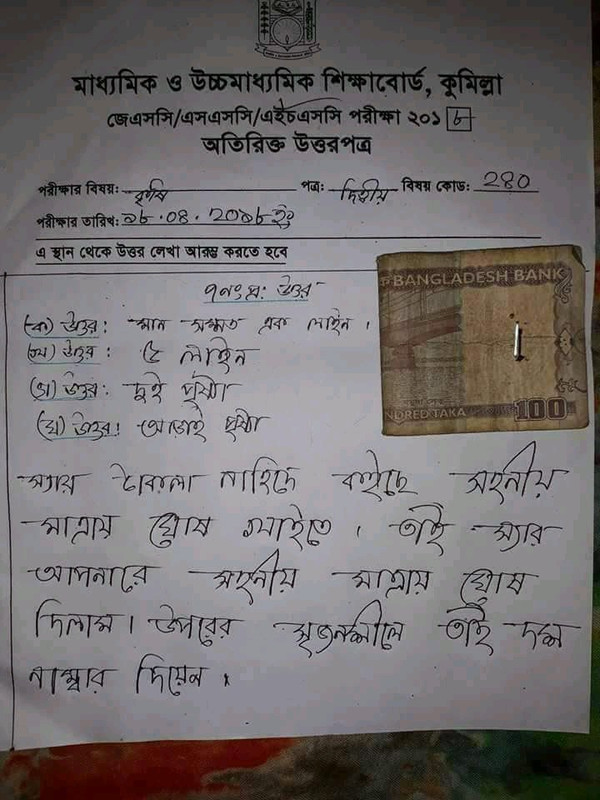 মাধ্যমিক ও উচ্চমাধ্যমিক শিক্ষাবোর্ড, কুমিল্লা
জেএসসি/এসএসসি/এইচএসসি পরীক্ষা ২০১৮
অতিরিক্ত উত্তরপত্র
পরীক্ষার বিষয়: কৃষি পত্র: দ্বিতীয় বিষয় কোড: 240
পরীক্ষার তারিখ: ১৮.০৪.২০১৮ ইং
এ স্থান থেকে উত্তর লেখা আরম্ভ করতে হবে
৭নং প্র: উত্তর
(ক) উত্তর: মান সম্মত এক লাইন।
(খ) উত্তর: ৫ লাইন
(গ) উত্তর: দুই পৃষ্ঠা
(ঘ) উত্তর: আড়াই পৃষ্ঠা
BANGLADESH BANK
NDRED TAKA 100
স্যার নাহিদে কইছে সহনীয়
মাত্রায় ঘোষ খাইতে। তাই স্যার
আপনারে সহনীয় মাত্রায় ঘোষ
দিলাম। উপরের সৃজনশীলে তাই দশ
নাম্বার দিয়েন।